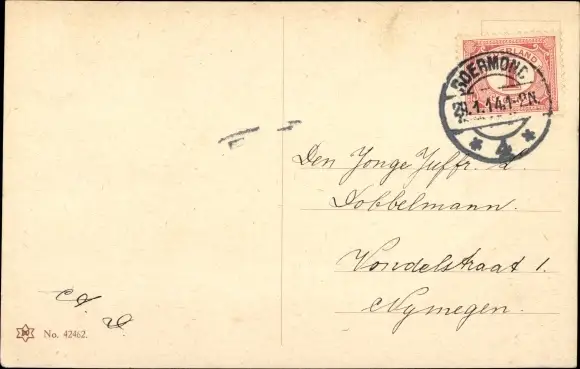 NEDERLAND
1
ROERMOND
29.1.14.1-2N.
* 4 *
Den Jonge Juffr. L.
Dobbelmann.
Vondelstraat 1.
Nymegen.
No. 42462.